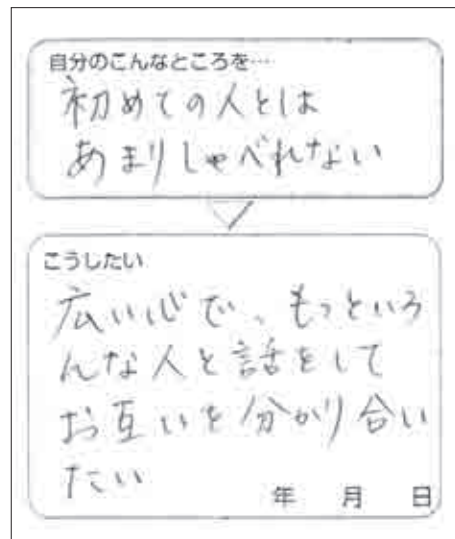 自分のこんなところを…
初めての人とは
あまりしゃべれない
こうしたい
広い心で、もっといろ
んな人と話をして
お互いを分かり合い
たい
年 月 日